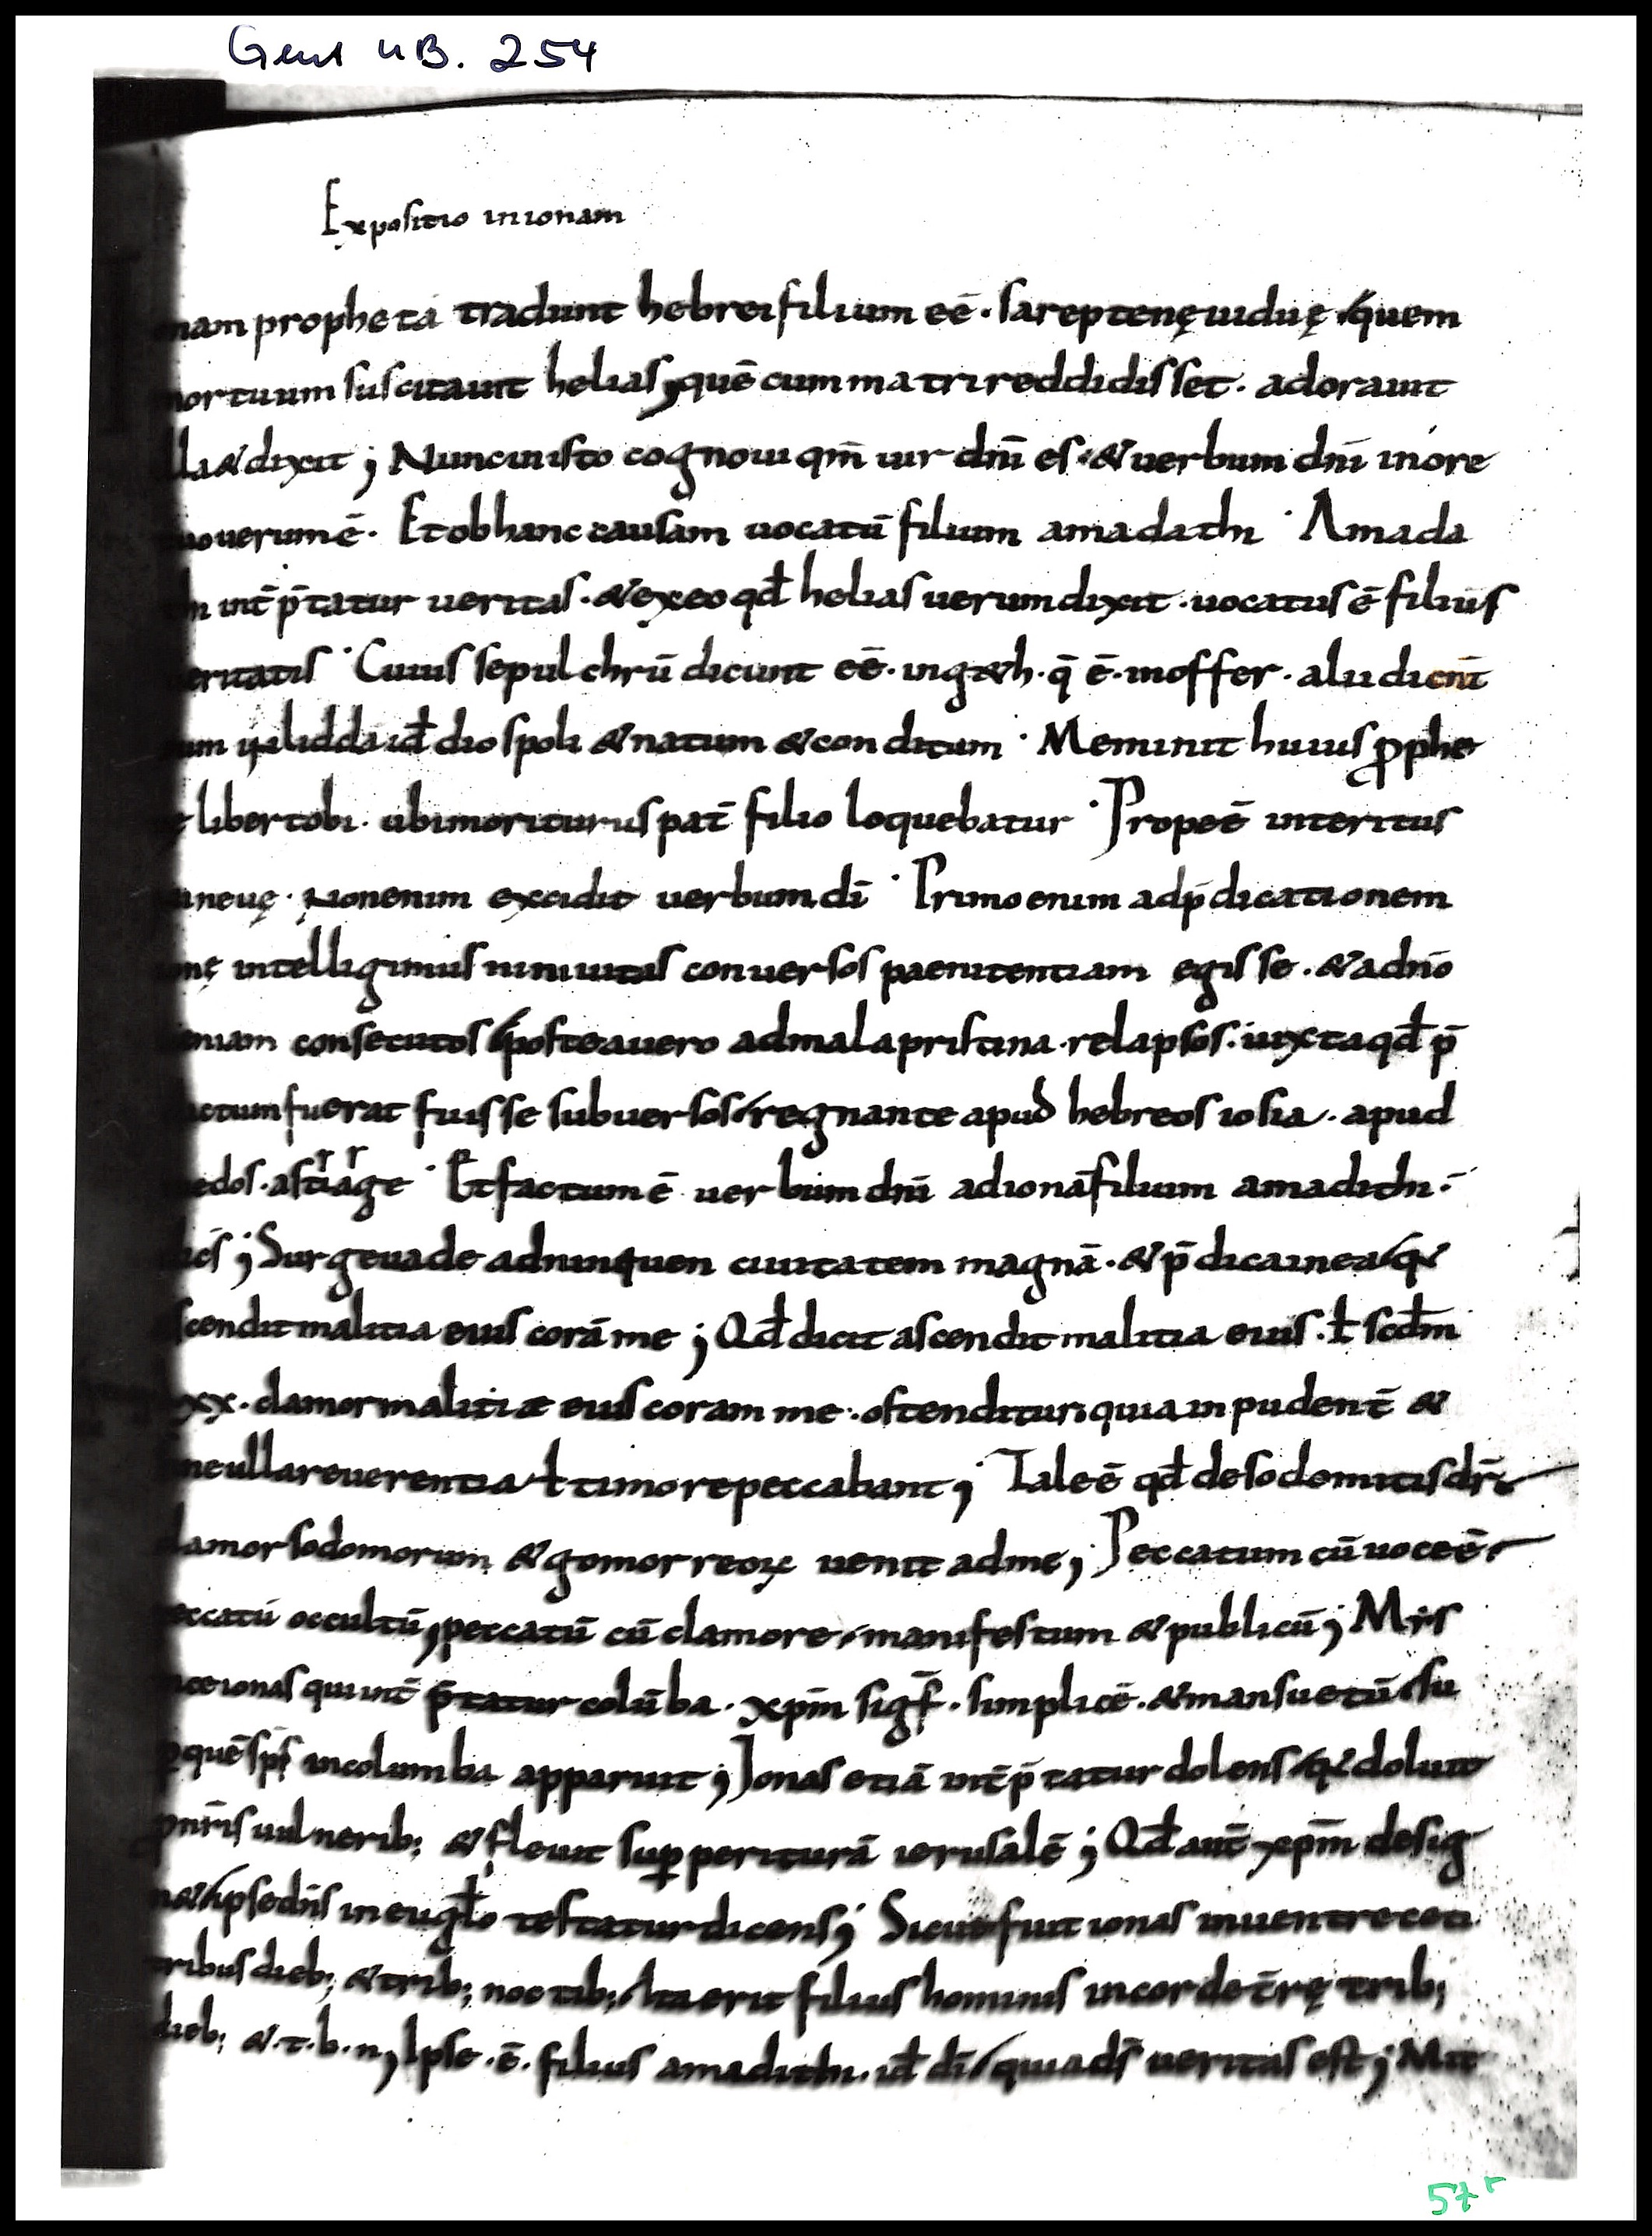 Gent UB. 254
Expositio inionam
nam prophetā tradunt hebrei filium eē · sareptenę uiduę quem
mortuum suscitauit helias, quē cum matri reddidisset · adorauit
lla & dixit ; Nunc in isto cognoui qm̄ uir dn̄i es · & uerbum dn̄i in ore
tuo uerum ē · Et ob hanc causam uocatū filium amadathi · Amada
thi int̄p̄tatur ueritas · & ex eo qđ helias uerum dixit · uocatus ē filius
ueritatis · Cuius sepulchrū dicunt eē · in g&h · q̄ ē · inoffer · alii dicūt
eum lidda iđ diospoli & natum & conditum · Meminit huius ꝓphe
tę liber tobi · ubi moriturus pat̄ filio loquebatur · Prope ē interitus
nineuę · Non enim excidit uerbum dī · Primo enim ad p̄dicationem
ionę intelligimus niniuitas conuersos paenitentiam egisse · & a dn̄o
ueniam consecutos postea uero ad mala pristina · relapsos · iuxta qđ p̄
dictum fuerat fuisse subuersos regnante apud hebreos iosia · apud
medos · astiage · Et factum ē uerbum dn̄i ad ionā filium amadithi ·
dics̄ ; Surge uade ad niniuen ciuitatem magnā · & p̄dica in ea q̄
ascendit malitia eius corā me ; Qđ dicit ascendit malitia eius · ł scđm
lxx · clamor malitiæ eius coram me · ostenditur quia inpudent̄ &
sine ulla reuerentia ł timore peccabant ; Tale ē qđ de sodomitis dr̄
clamor sodomorum & gomorreoꝝ uenit ad me ; Peccatum cū uoce ē
peccatū occultū, peccatū cū clamore · manifestum & publicū ; Mys
tice ionas qui int̄p̄tatur colūba · xpm̄ sigf̄ · simplicē · & mansuetū su
ꝑ quē sps̄ in columba apparuit ; Ionas etiā int̄p̄tatur dolens q̄ doluit
ꝓ nr̄is uulnerib; & fleuit suꝑ periturā ierusalē ; Qđ aut̄ xpm̄ desig
n& ipse dn̄s in eugło testatur dicens ; Sicut fuit ionas in uentre ceti
tribus dieb; & trib; noctib; ita erit filius hominis in corde t̄rę trib;
dieb; & · t · b · n, Ipse · ē · filius amadithi · iđ dī quia ds̄ ueritas est ; Mit
57r